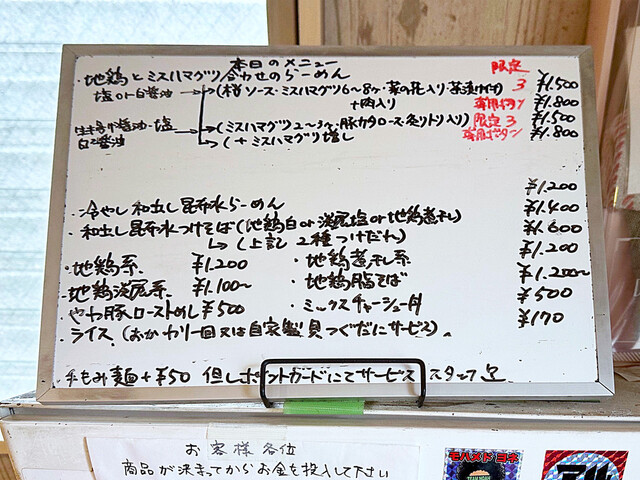 本日のメニュー
・地鶏とミズハマグリ合わせのらーめん 限定
塩or白醤油 →(桜ソース・ミズハマグリ6〜8ヶ・菜の花入り・茶漬け付) 3 ¥1,500
+肉入り 専用ボタン ¥1.800
生醤油・塩 →(ミズハマグリ2〜3ヶ・豚カタロース・炙りトリ入り) 限定3 ¥1,500
白醤油 →(+ミズハマグリ増し 専用ボタン ¥1.800
・冷やし和出し昆布水らーめん ¥1.200
・和出し昆布水つけそば(地鶏白or淡麗塩or地鶏煮干し) ¥1.400
→(上記2種つけだれ) ¥1.600
・地鶏系 ¥1.200 ・地鶏煮干し系 ¥1.200
・地鶏淡麗系 ¥1.100〜 ・地鶏脂そば ¥1.200〜
・やわ豚ローストめし ¥500 ・ミックスチャーシュー丼 ¥500
・ライス(おかわり一回又は自家製貝つくだにサービス)。 ¥170
手もみ麺+¥50 但しポイントカードにてサービス スタッフ
お客様各位
商品が決まってからお金を投入して下さい
モハメド ヨネ